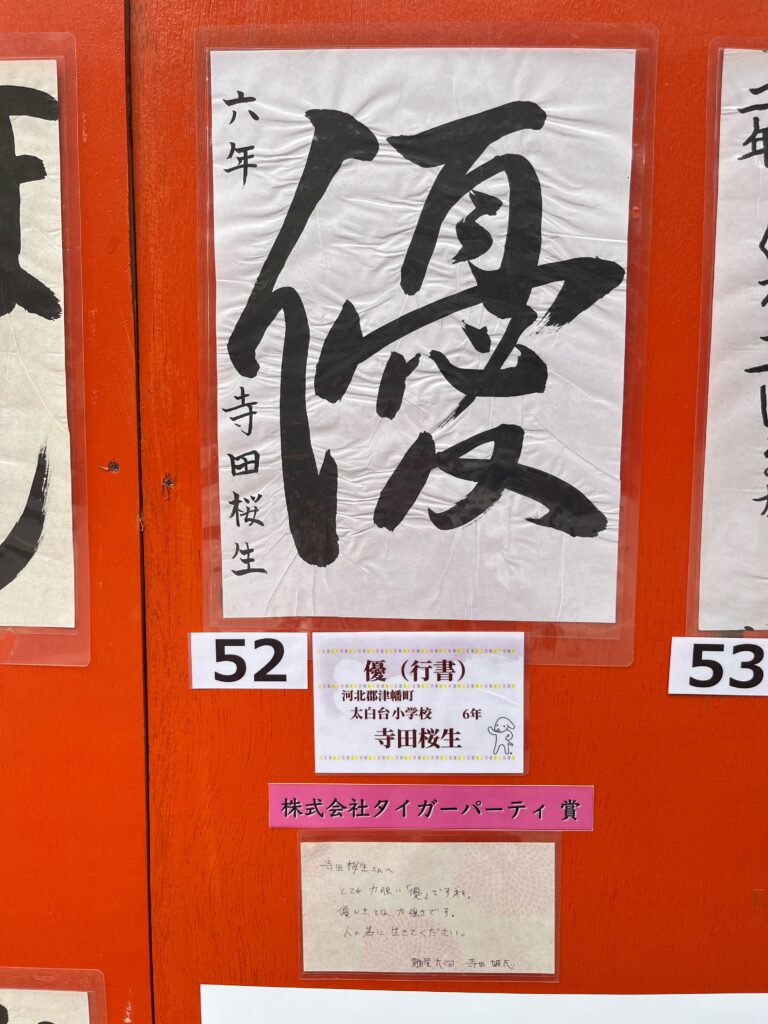 優
六年
寺田桜生
52
優（行書）
河北郡津幡町
太白台小学校 6年
寺田桜生
株式会社タイガーパーティ 賞
寺田桜生さんへ
とても力強い「優」ですね。
優しさとは、力強さです。
人の為に、生きてください。
二年
53